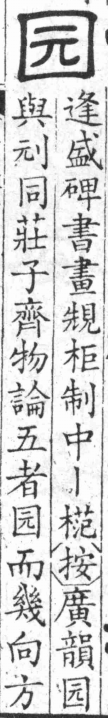 园
逢盛碑書畫䂓柜制中丨㮄按廣韻园
與刓同莊子齊物論五者园而幾向方